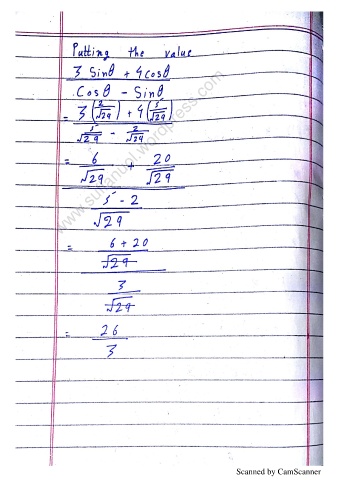 Putting the value
3 Sinθ + 4 cosθ
Cosθ - Sinθ
= 3 (2/√29) + 4 (5/√29)
5/√29 - 2/√29
= 6/√29 + 20/√29
5 - 2
√29
= 6 + 20
√29
3
√29
= 26
3
Scanned by CamScanner